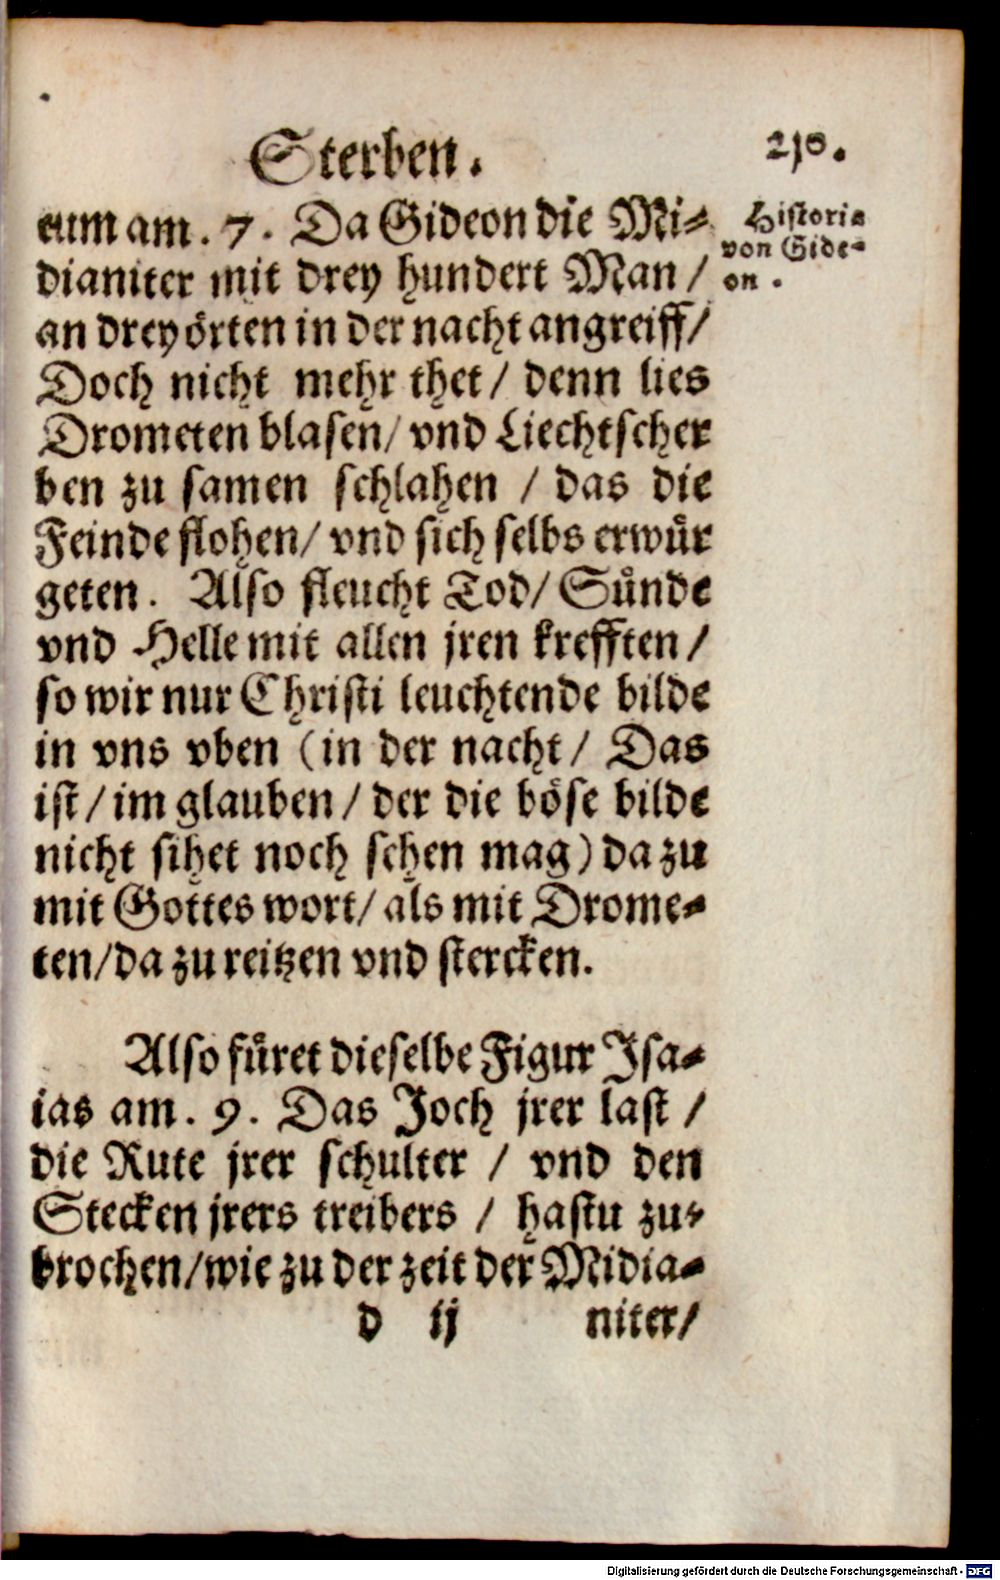 Sterben.
210.
eum am. 7. Da Gideon die Mi-
dianiter mit drey hundert Man /
an drey örten in der nacht angreiff/
Doch nicht mehr thet / denn lies
Drometen blasen/ vnd Liechtscher
ben zu samen schlahen / das die
Feinde flohen/ vnd sich selbs erwuͤr
geten. Also fleucht Tod/ Suͤnde
vnd Helle mit allen jren krefften /
so wir nur Christi leuchtende bilde
in vns vben (in der nacht / Das
ist / im glauben / der die böse bilde
nicht sihet noch sehen mag) da zu
mit Gottes wort/ als mit Drome-
ten/da zu reitzen vnd stercken.
Historia
von Gide-
on.
Also fuͤret dieselbe Figur Isa-
ias am. 9. Das Joch jrer last /
die Rute jrer schulter / vnd den
Stecken jrers treibers / hastu zu-
brochen/wie zu der zeit der Midia-
d ij niter/
Digitalisierung gefördert durch die Deutsche Forschungsgemeinschaft - DFG